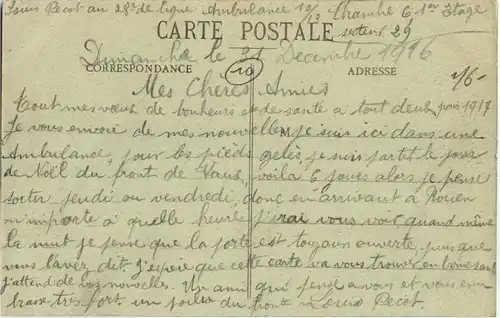 Louis Pecot au 28e de ligne Ambulance 10/13 Chambre 6 1er Etage
secteur 29
CARTE POSTALE
Dimanche le 31 Decembre 1916
CORRESPONDANCE
ADRESSE
Mes Chères Amies
Tout mes vœux de bonheurs et de santé a tout deux pour 1917
Je vous envoie de mes nouvelles je suis ici dans une
Ambulance, pour les pieds gelés, je suis partit le jour
de Noël du front de Vaux, voila 6 jours alors je pense
sortir jeudi ou vendredi, donc en arrivant à Rouen
n'importe à quelle heure j'irai vous voir, quand même
la nuit je pense que la porte est toujour ouverte, puis que
vous l'avez dit. J'espère que cette carte va vous trouver en bonne santé
J'attend de vos nouvelles. Un ami qui pense a vous et vous em
brasse très fort un poilu du front Louis Pecot